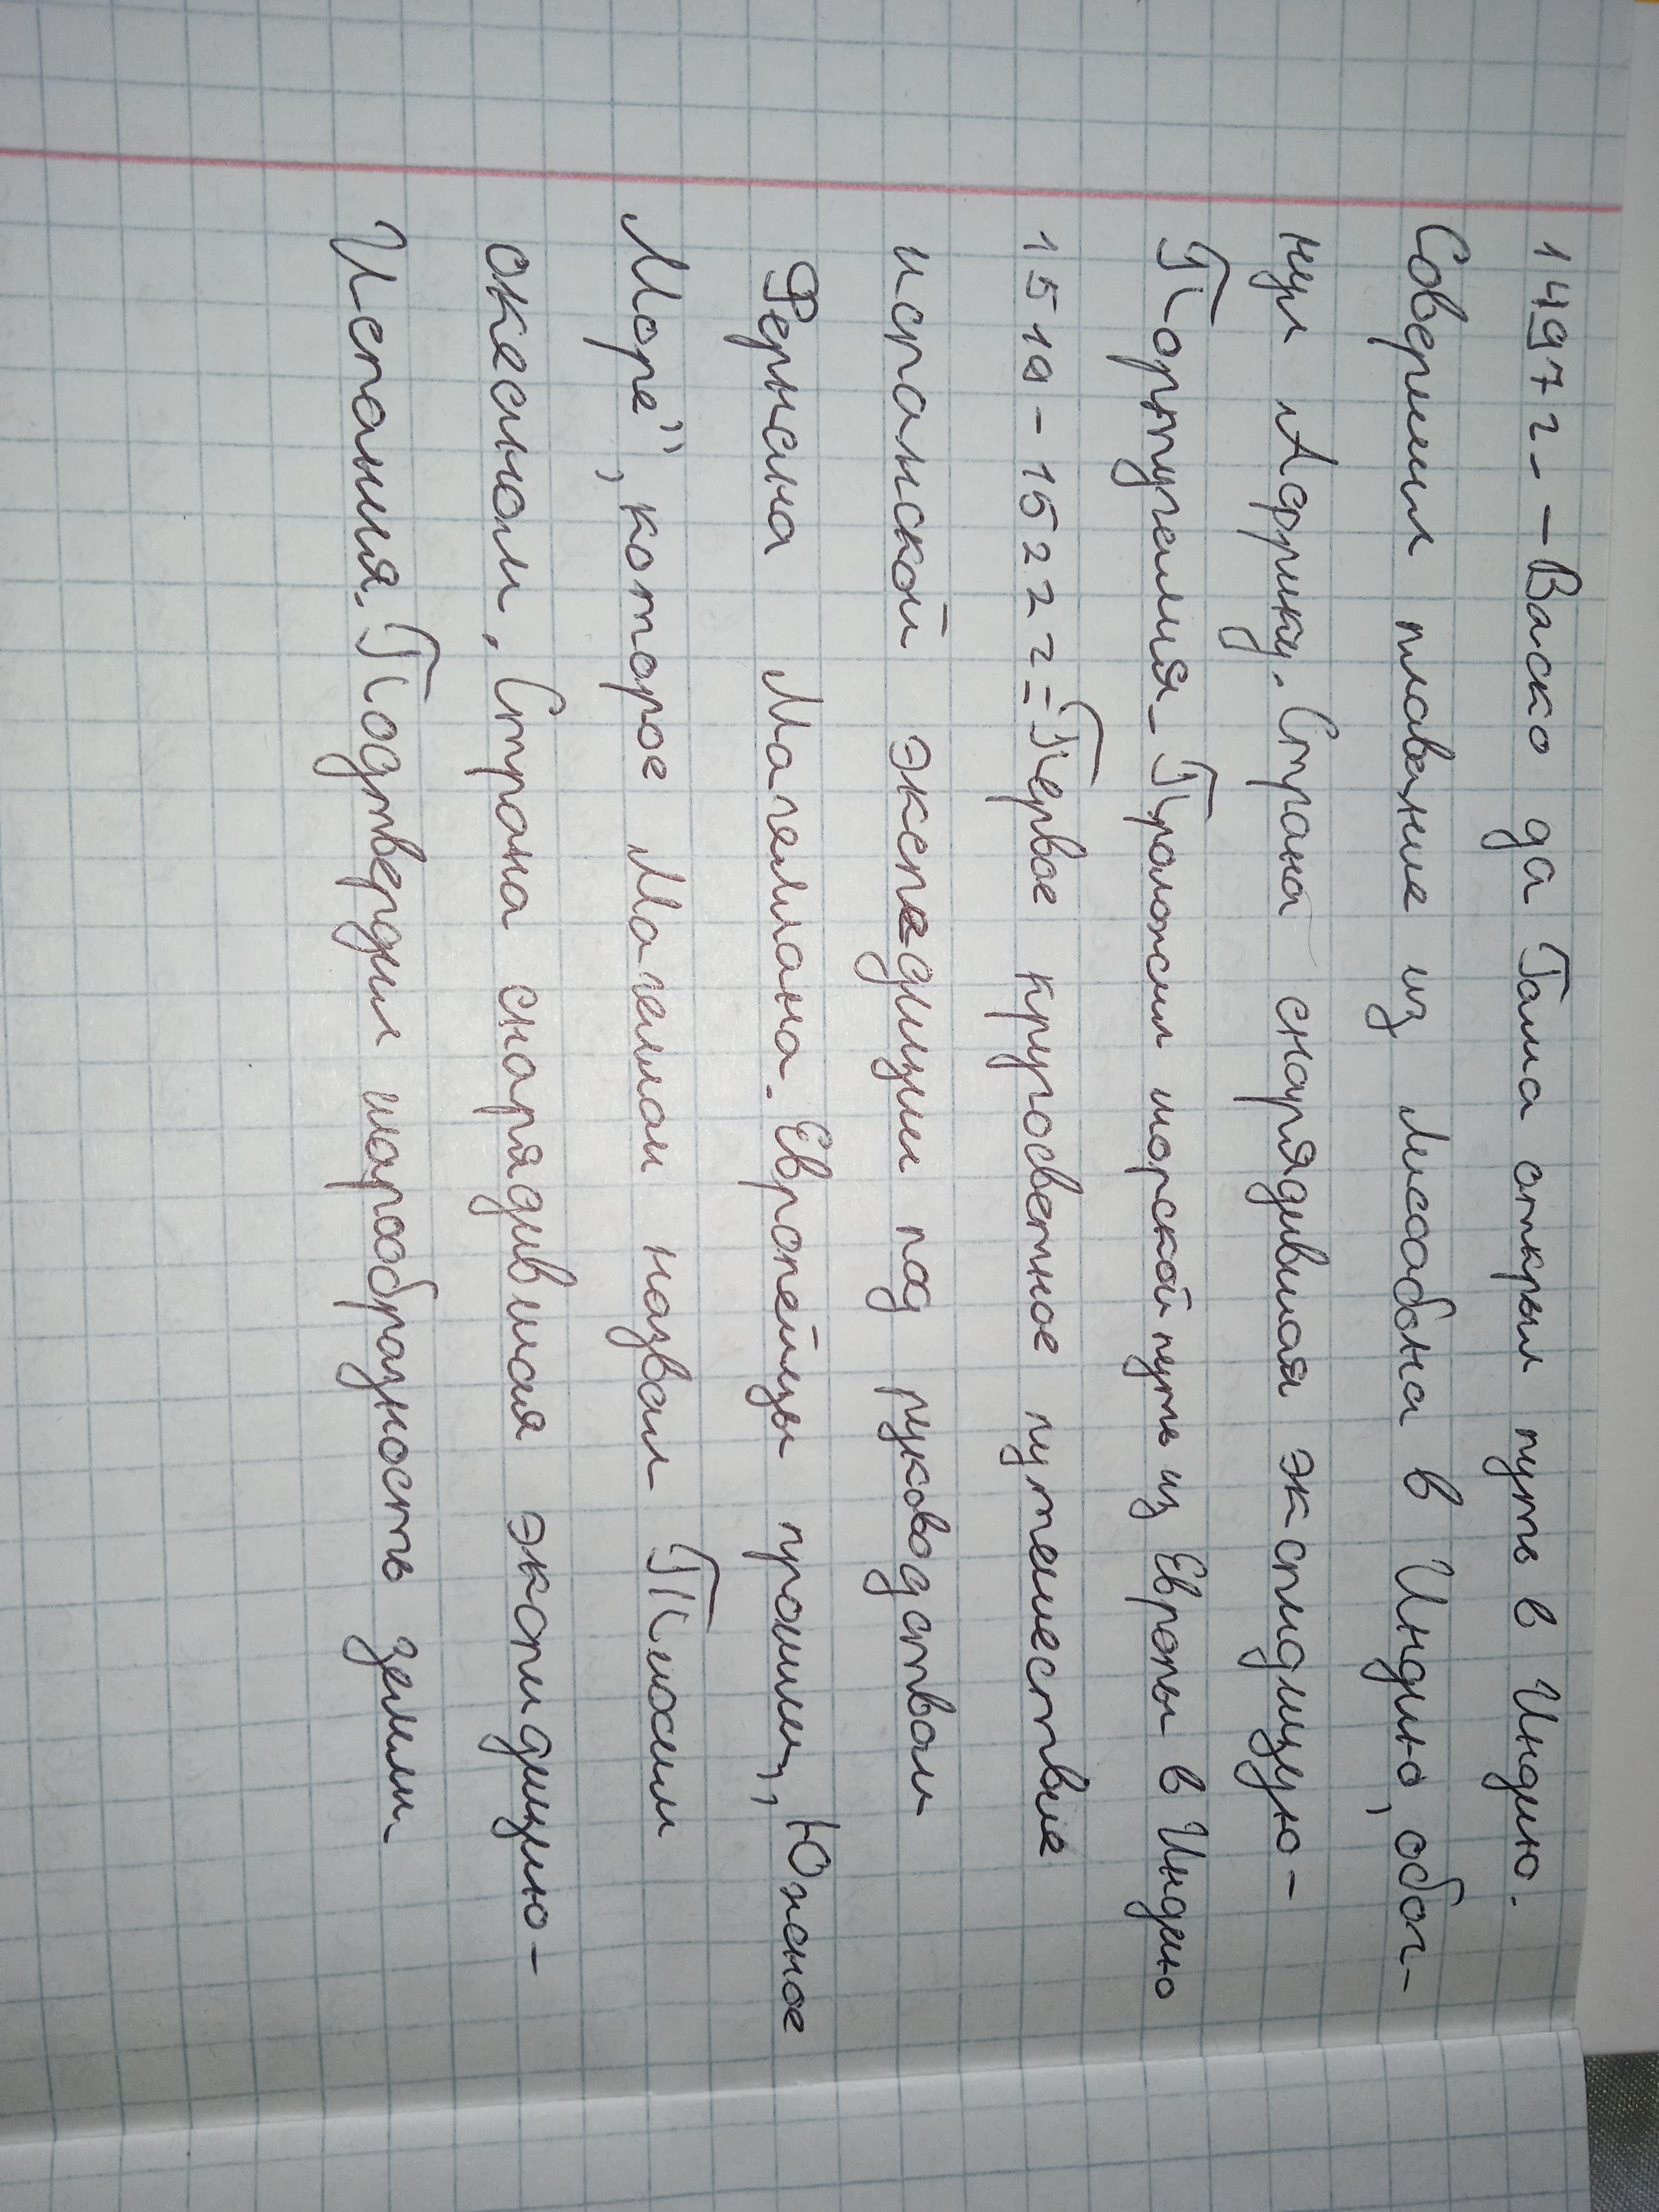 1497г. – Васко да Гама открыл путь в Индию.
Совершил плавание из Лисабона в Индию, обог-
нул Африку. Страна снарядившая экспидицую-
Португалия. Проложил морской путь из Европы в Индию
1519-1522г. – Первое кругосветное путешествие
испранской экспедиции под руководством
Фернана Магеллана. Европейцы прошли „Южное
Море", которое Магеллан назвал Тихим
океаном. Страна снарядившая экспидицию-
Испания. Подтвердил шарообразность земли